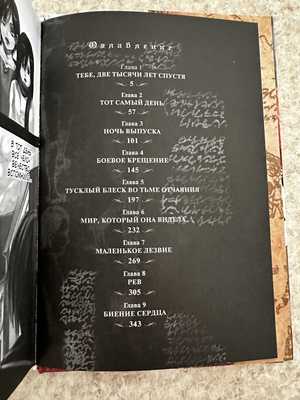 Оглавление
Глава 1
ТЕБЕ, ДВЕ ТЫСЯЧИ ЛЕТ СПУСТЯ
5
Глава 2
ТОТ САМЫЙ ДЕНЬ
57
Глава 3
НОЧЬ ВЫПУСКА
101
Глава 4
БОЕВОЕ КРЕЩЕНИЕ
145
Глава 5
ТУСКЛЫЙ БЛЕСК ВО ТЬМЕ ОТЧАЯНИЯ
197
Глава 6
МИР, КОТОРЫЙ ОНА ВИДЕЛА
232
Глава 7
МАЛЕНЬКОЕ ЛЕЗВИЕ
269
Глава 8
РЕВ
305
Глава 9
БИЕНИЕ СЕРДЦА
343
В ТОТ ДЕНЬ